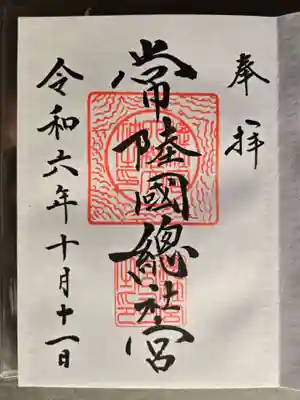 奉拝
常陸國總社宮
令和六年十月十一日